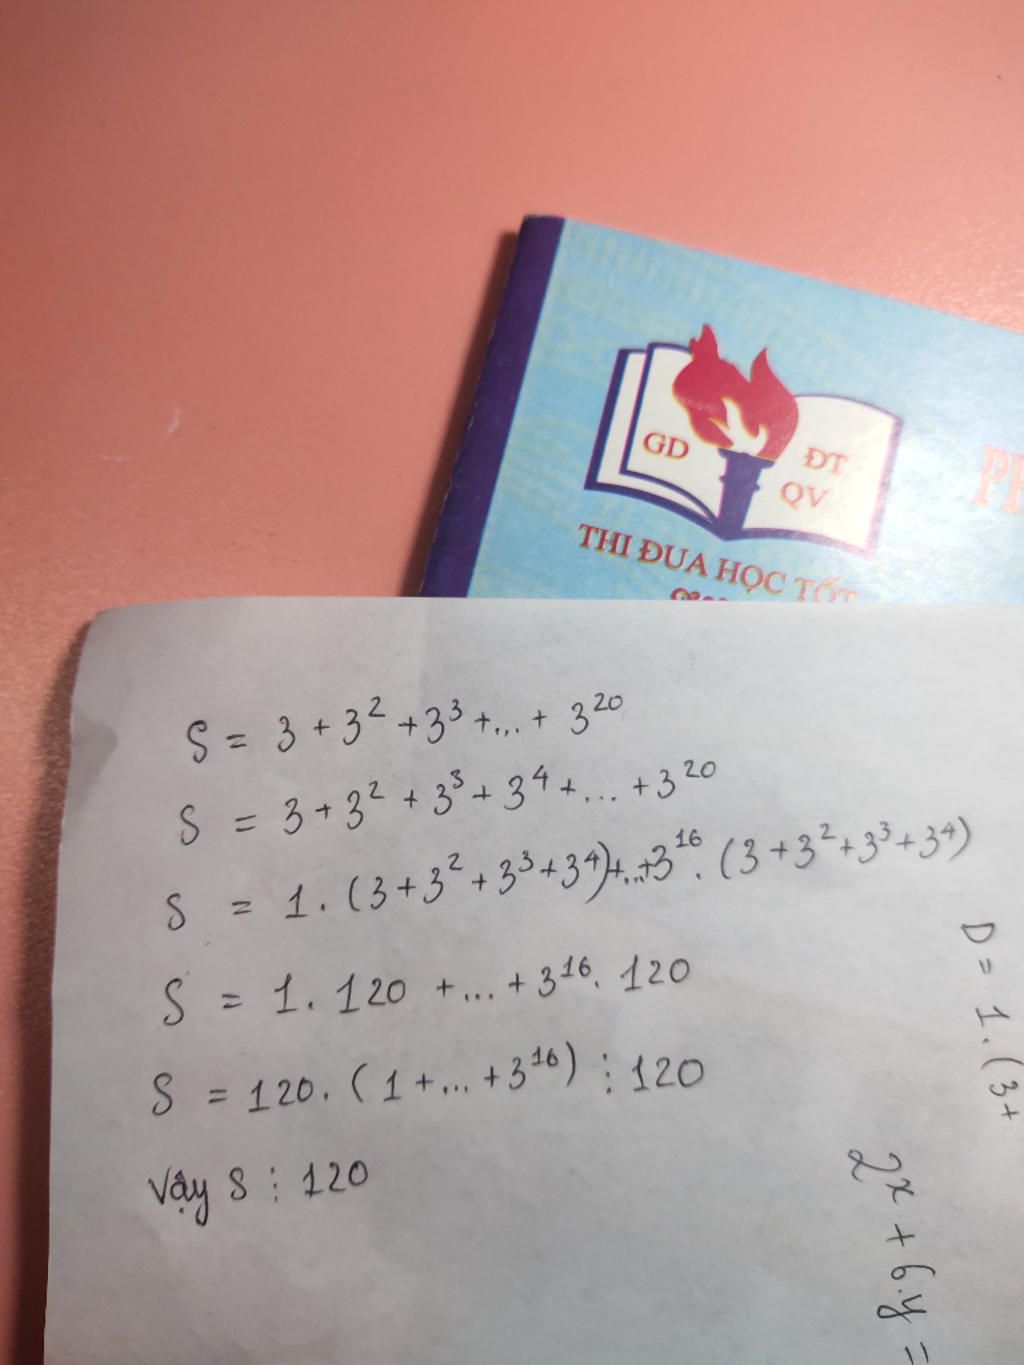 GD
ĐT
QV
THI ĐUA HỌC TỐT
S = 3 + 3² + 3³ + ... + 3²⁰
S = 3 + 3² + 3³ + 3⁴ + ... + 3²⁰
S = 1. (3 + 3² + 3³ + 3⁴) + ... + 3¹⁶. (3 + 3² + 3³ + 3⁴)
S = 1. 120 + ... + 3¹⁶. 120
S = 120. (1 + ... + 3¹⁶) ⋮ 120
Vậy S ⋮ 120
D = 1. (3+
2x + 6.y =